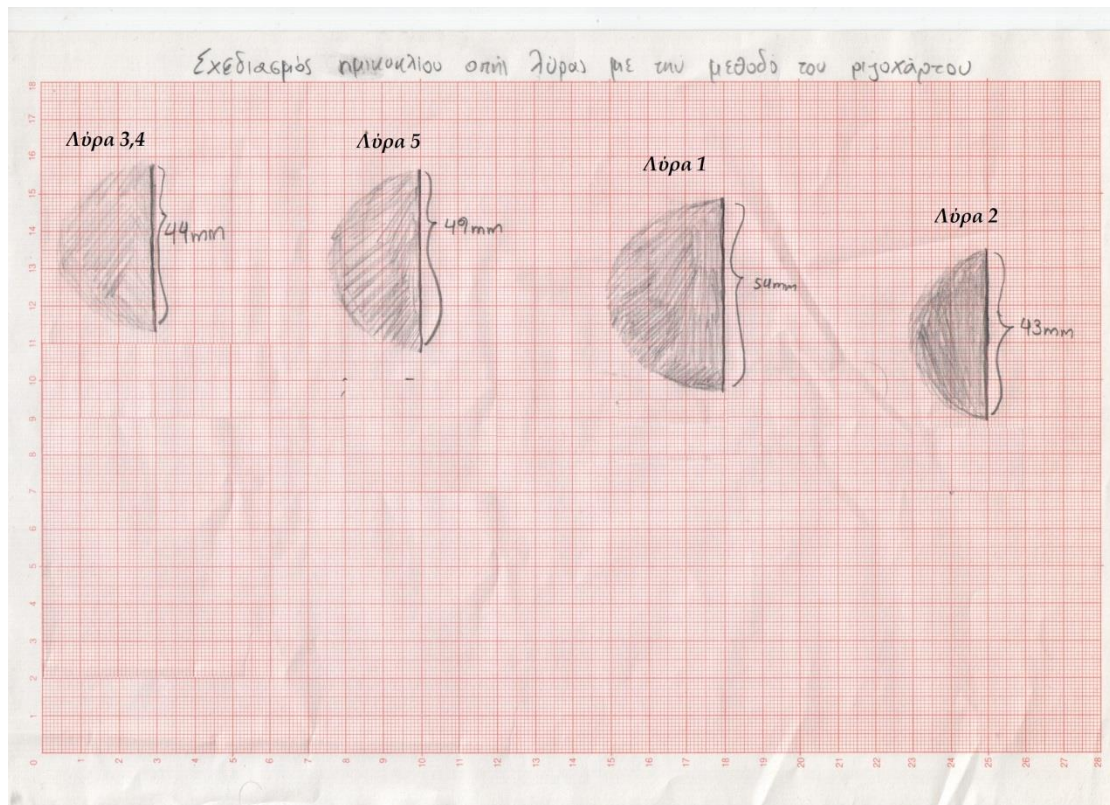 Σχεδιασμός ημικυκλίου οπή λύρας με την μέθοδο του ριζοχάρτου
Λύρα 3,4
Λύρα 5
Λύρα 1
Λύρα 2
44mm
49mm
54mm
43mm
18
17
16
15
14
13
12
11
10
9
8
7
6
5
4
3
2
1
0 1 2 3 4 5 6 7 8 9 10 11 12 13 14 15 16 17 18 19 20 21 22 23 24 25 26 27 28